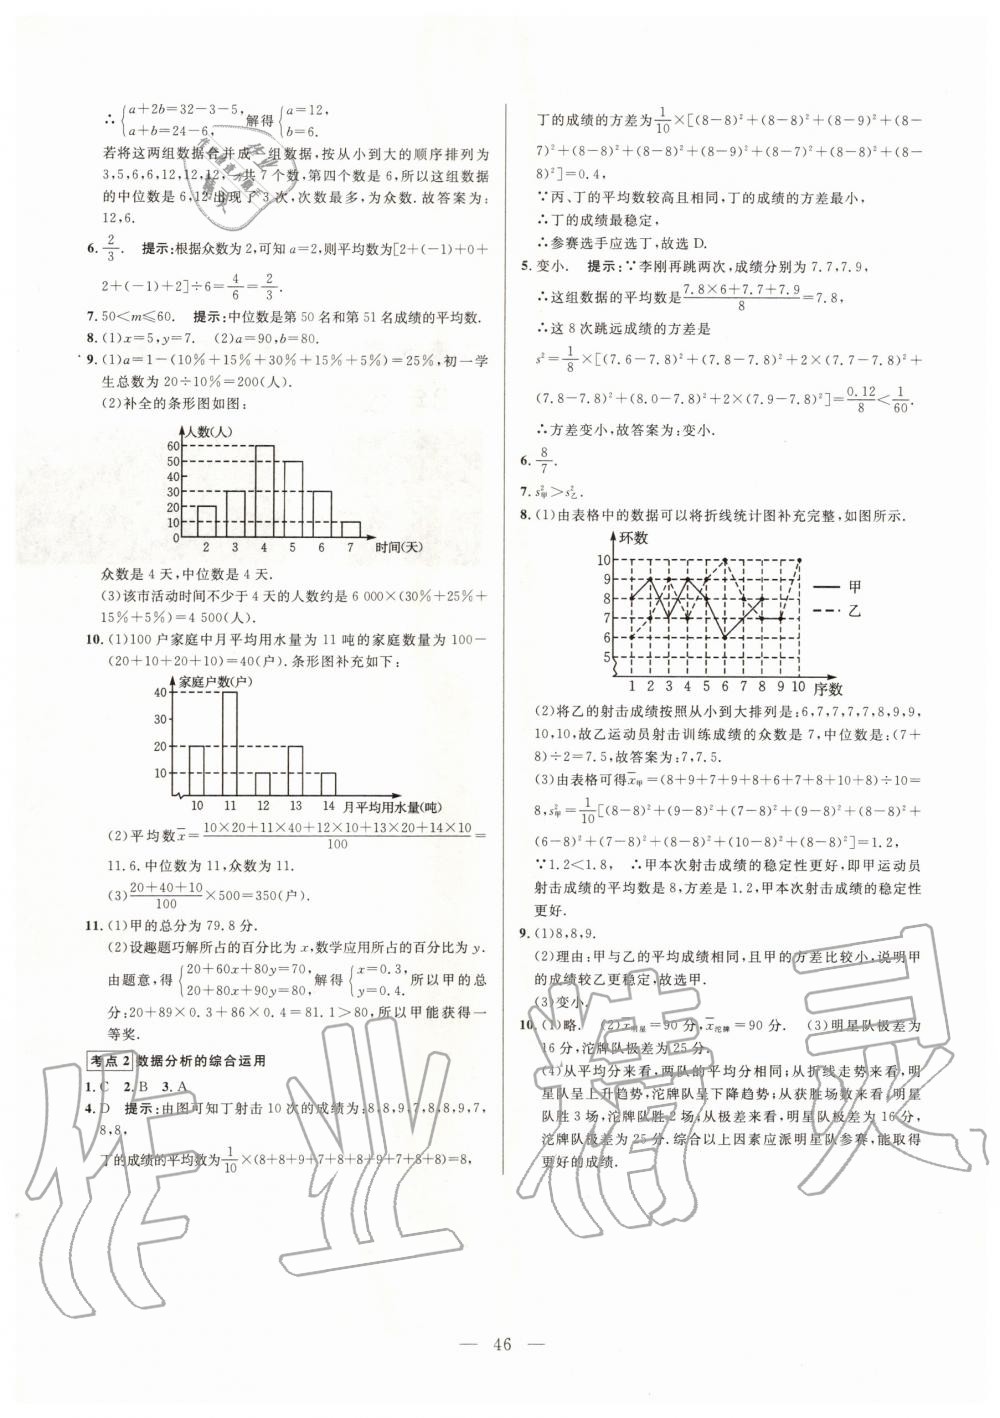 ∴ {a+2b=32-3-5, a+b=24-6, 解得 {a=12, b=6.
若将这两组数据合并成一组数据,按从小到大的顺序排列为
3,5,6,6,12,12,12,一共7个数,第四个数是6,所以这组数据
的中位数是6,12出现了3次,次数最多,为众数.故答案为:
12,6.
6. 2/3. 提示:根据众数为2,可知a=2,则平均数为[2+(-1)+0+
2+(-1)+2]÷6=4/6=2/3.
7. 50<m≤60. 提示:中位数是第50名和第51名成绩的平均数.
8. (1)x=5,y=7. (2)a=90,b=80.
9. (1)a=1-(10%+15%+30%+15%+5%)=25%,初一学
生总数为20÷10%=200(人).
(2)补全的条形图如图:
人数(人)
60
50
40
30
20
10
0
2 3 4 5 6 7 时间(天)
众数是4天,中位数是4天.
(3)该市活动时间不少于4天的人数约是6 000×(30%+25%+
15%+5%)=4 500(人).
10. (1)100户家庭中月平均用水量为11吨的家庭数量为100-
(20+10+20+10)=40(户).条形图补充如下:
家庭户数(户)
40
30
20
10
10 11 12 13 14 月平均用水量(吨)
(2)平均数x̄=(10×20+11×40+12×10+13×20+14×10)/100=
11.6.中位数为11,众数为11.
(3)(20+40+10)/100×500=350(户).
11. (1)甲的总分为79.8分.
(2)设趣题巧解所占的百分比为x,数学应用所占的百分比为y.
由题意,得 {20+60x+80y=70, 20+80x+90y=80, 解得 {x=0.3, y=0.4. 所以甲的总
分:20+89×0.3+86×0.4=81.1>80,所以甲能获得一
等奖.
考点2 数据分析的综合运用
1. C 2. B 3. A
4. D 提示:由图可知丁射击10次的成绩为:8,8,9,7,8,8,9,7,
8,8,
丁的成绩的平均数为1/10×(8+8+9+7+8+8+9+7+8+8)=8,
丁的成绩的方差为1/10×[(8-8)²+(8-8)²+(8-9)²+(8-
7)²+(8-8)²+(8-8)²+(8-9)²+(8-7)²+(8-8)²+(8-
8)²]=0.4,
∵丙、丁的平均数较高且相同,丁的成绩的方差最小,
∴丁的成绩最稳定,
∴参赛选手应选丁,故选D.
5. 变小. 提示:∵李刚再跳两次,成绩分别为7.7,7.9,
∴这组数据的平均数是(7.8×6+7.7+7.9)/8=7.8,
∴这8次跳远成绩的方差是
s²=1/8×[(7.6-7.8)²+(7.8-7.8)²+2×(7.7-7.8)²+
(7.8-7.8)²+(8.0-7.8)²+2×(7.9-7.8)²]=0.12/8<1/60.
∴方差变小,故答案为:变小.
6. 8/7.
7. s²甲>s²乙.
8. (1)由表格中的数据可以将折线统计图补充完整,如图所示.
环数
10
9
8
7
6
5
甲
乙
1 2 3 4 5 6 7 8 9 10 序数
(2)将乙的射击成绩按照从小到大排列是:6,7,7,7,7,8,9,9,
10,10,故乙运动员射击训练成绩的众数是7,中位数是:(7+
8)÷2=7.5,故答案为:7,7.5.
(3)由表格可得x̄甲=(8+9+7+9+8+6+7+8+10+8)÷10=
8,s²甲=1/10[(8-8)²+(9-8)²+(7-8)²+(9-8)²+(8-8)²+
(6-8)²+(7-8)²+(8-8)²+(10-8)²+(8-8)²]=1.2,
∵1.2<1.8, ∴甲本次射击成绩的稳定性更好,即甲运动员
射击成绩的平均数是8,方差是1.2,甲本次射击成绩的稳定性
更好.
9. (1)8,8,9.
(2)理由:甲与乙的平均成绩相同,且甲的方差比较小,说明甲
的成绩较乙更稳定,故选甲.
(3)变小.
10. (1)略. (2)x̄明星=90分,x̄沱牌=90分. (3)明星队极差为
16分,沱牌队极差为25分.
(4)从平均分来看,两队的平均分相同;从折线走势来看,明
星队呈上升趋势,沱牌队呈下降趋势;从获胜场数来看,明星
队胜3场,沱牌队胜2场;从极差来看,明星队极差为16分,
沱牌队极差为25分.综合以上因素应派明星队参赛,能取得
更好的成绩.
作业精灵
— 46 —